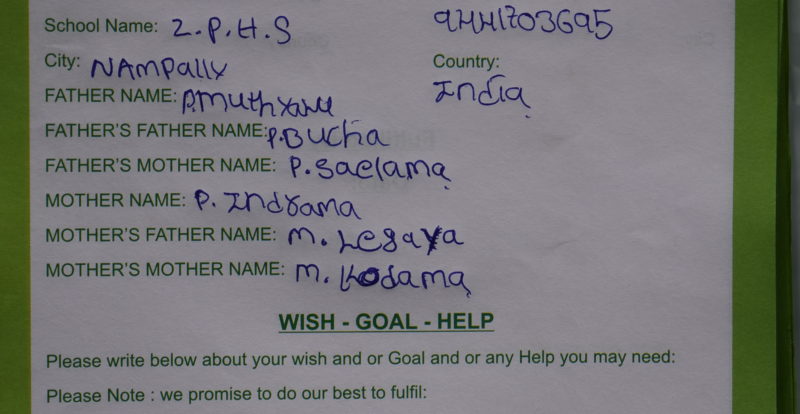 School Name: Z.P.H.S 9441703695
City: NAMPALLY Country:
India
FATHER NAME: P.Muthyalu
FATHER'S FATHER NAME: P.Bucha
FATHER'S MOTHER NAME: P. Saelama
MOTHER NAME: P. Indrama
MOTHER'S FATHER NAME: M. Legaya
MOTHER'S MOTHER NAME: M. Kodama
WISH - GOAL - HELP
Please write below about your wish and or Goal and or any Help you may need:
Please Note : we promise to do our best to fulfil: